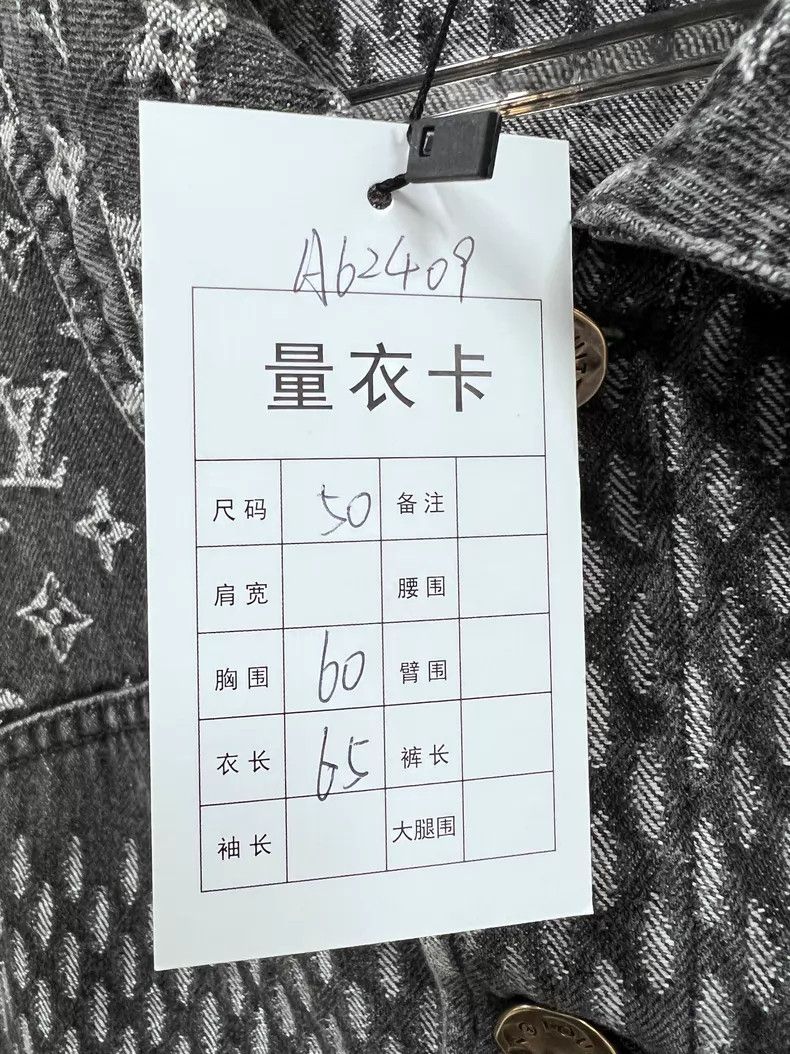 A62409
量衣卡
尺码 50 备注
肩宽 腰围
胸围 60 臂围
衣长 65 裤长
袖长 大腿围